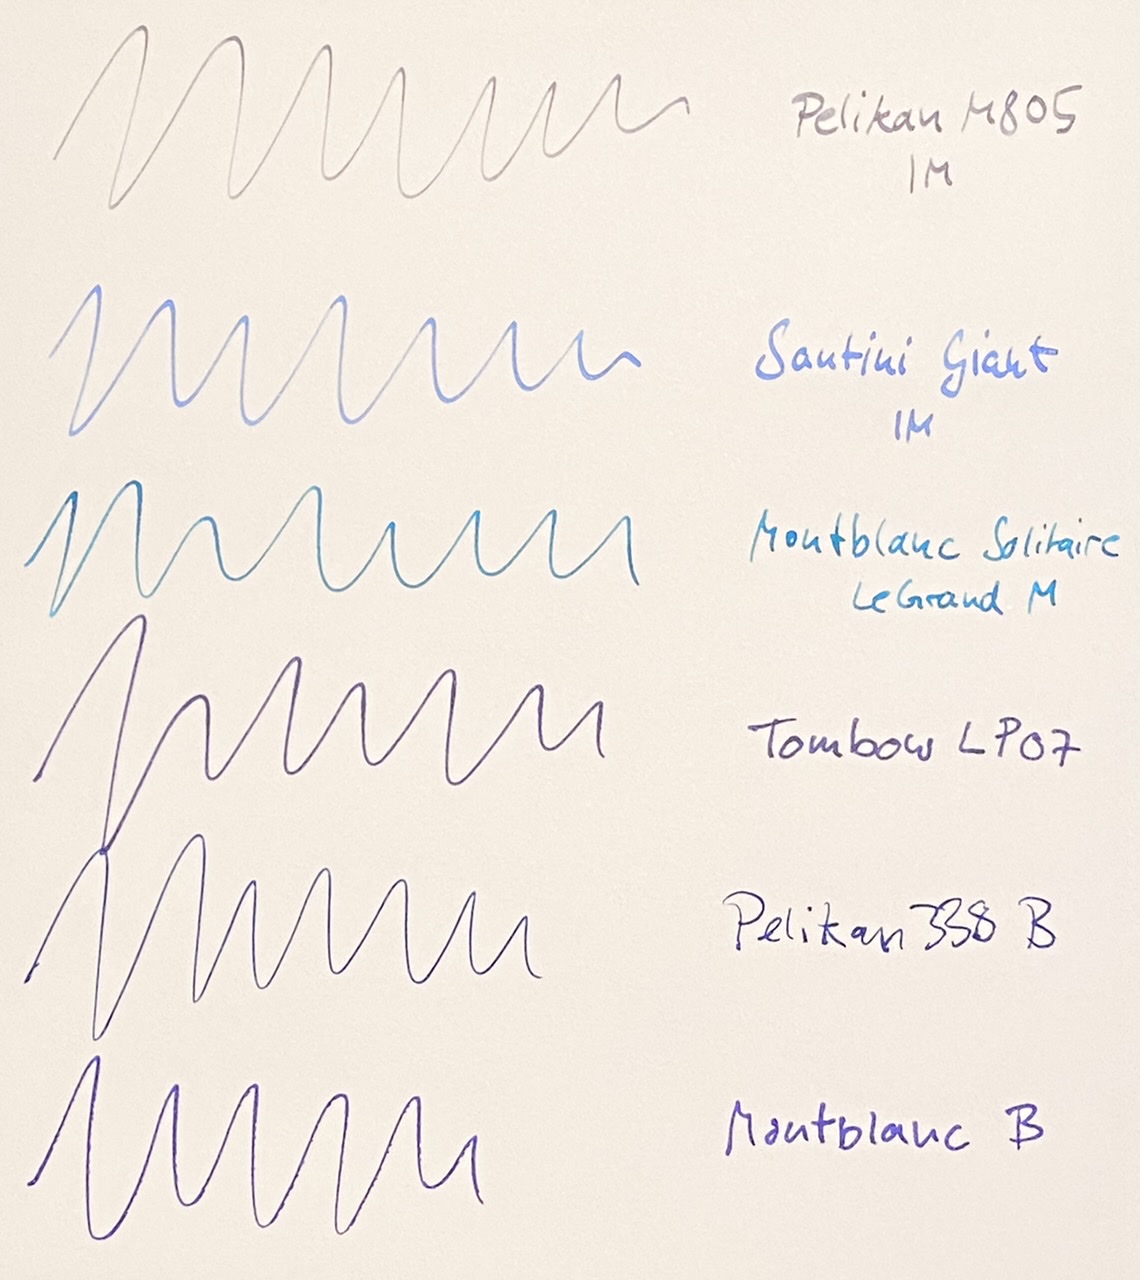 Pelikan M805
IM
Santini Giant
IM
Montblanc Solitaire
LeGrand M
Tombow LP07
Pelikan 338 B
Montblanc B